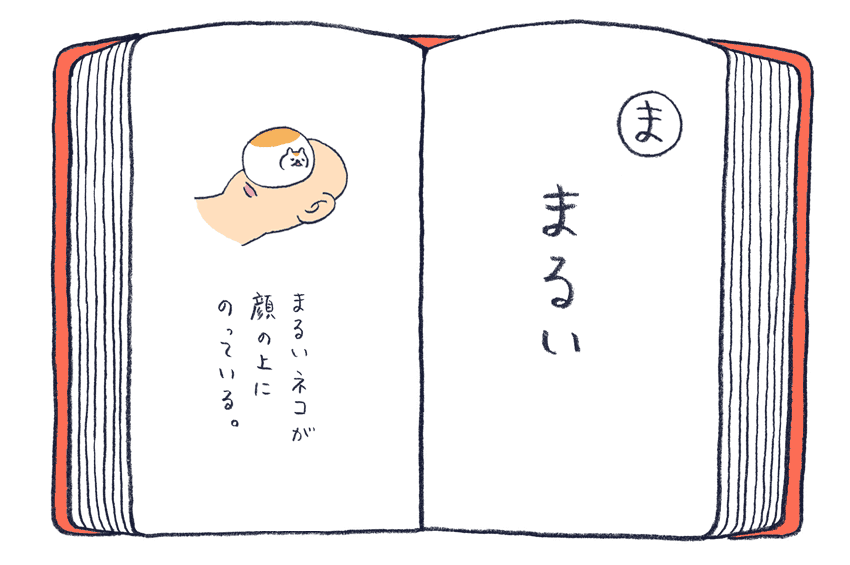 ま
まるい
まるいネコが
顔の上に
のっている。